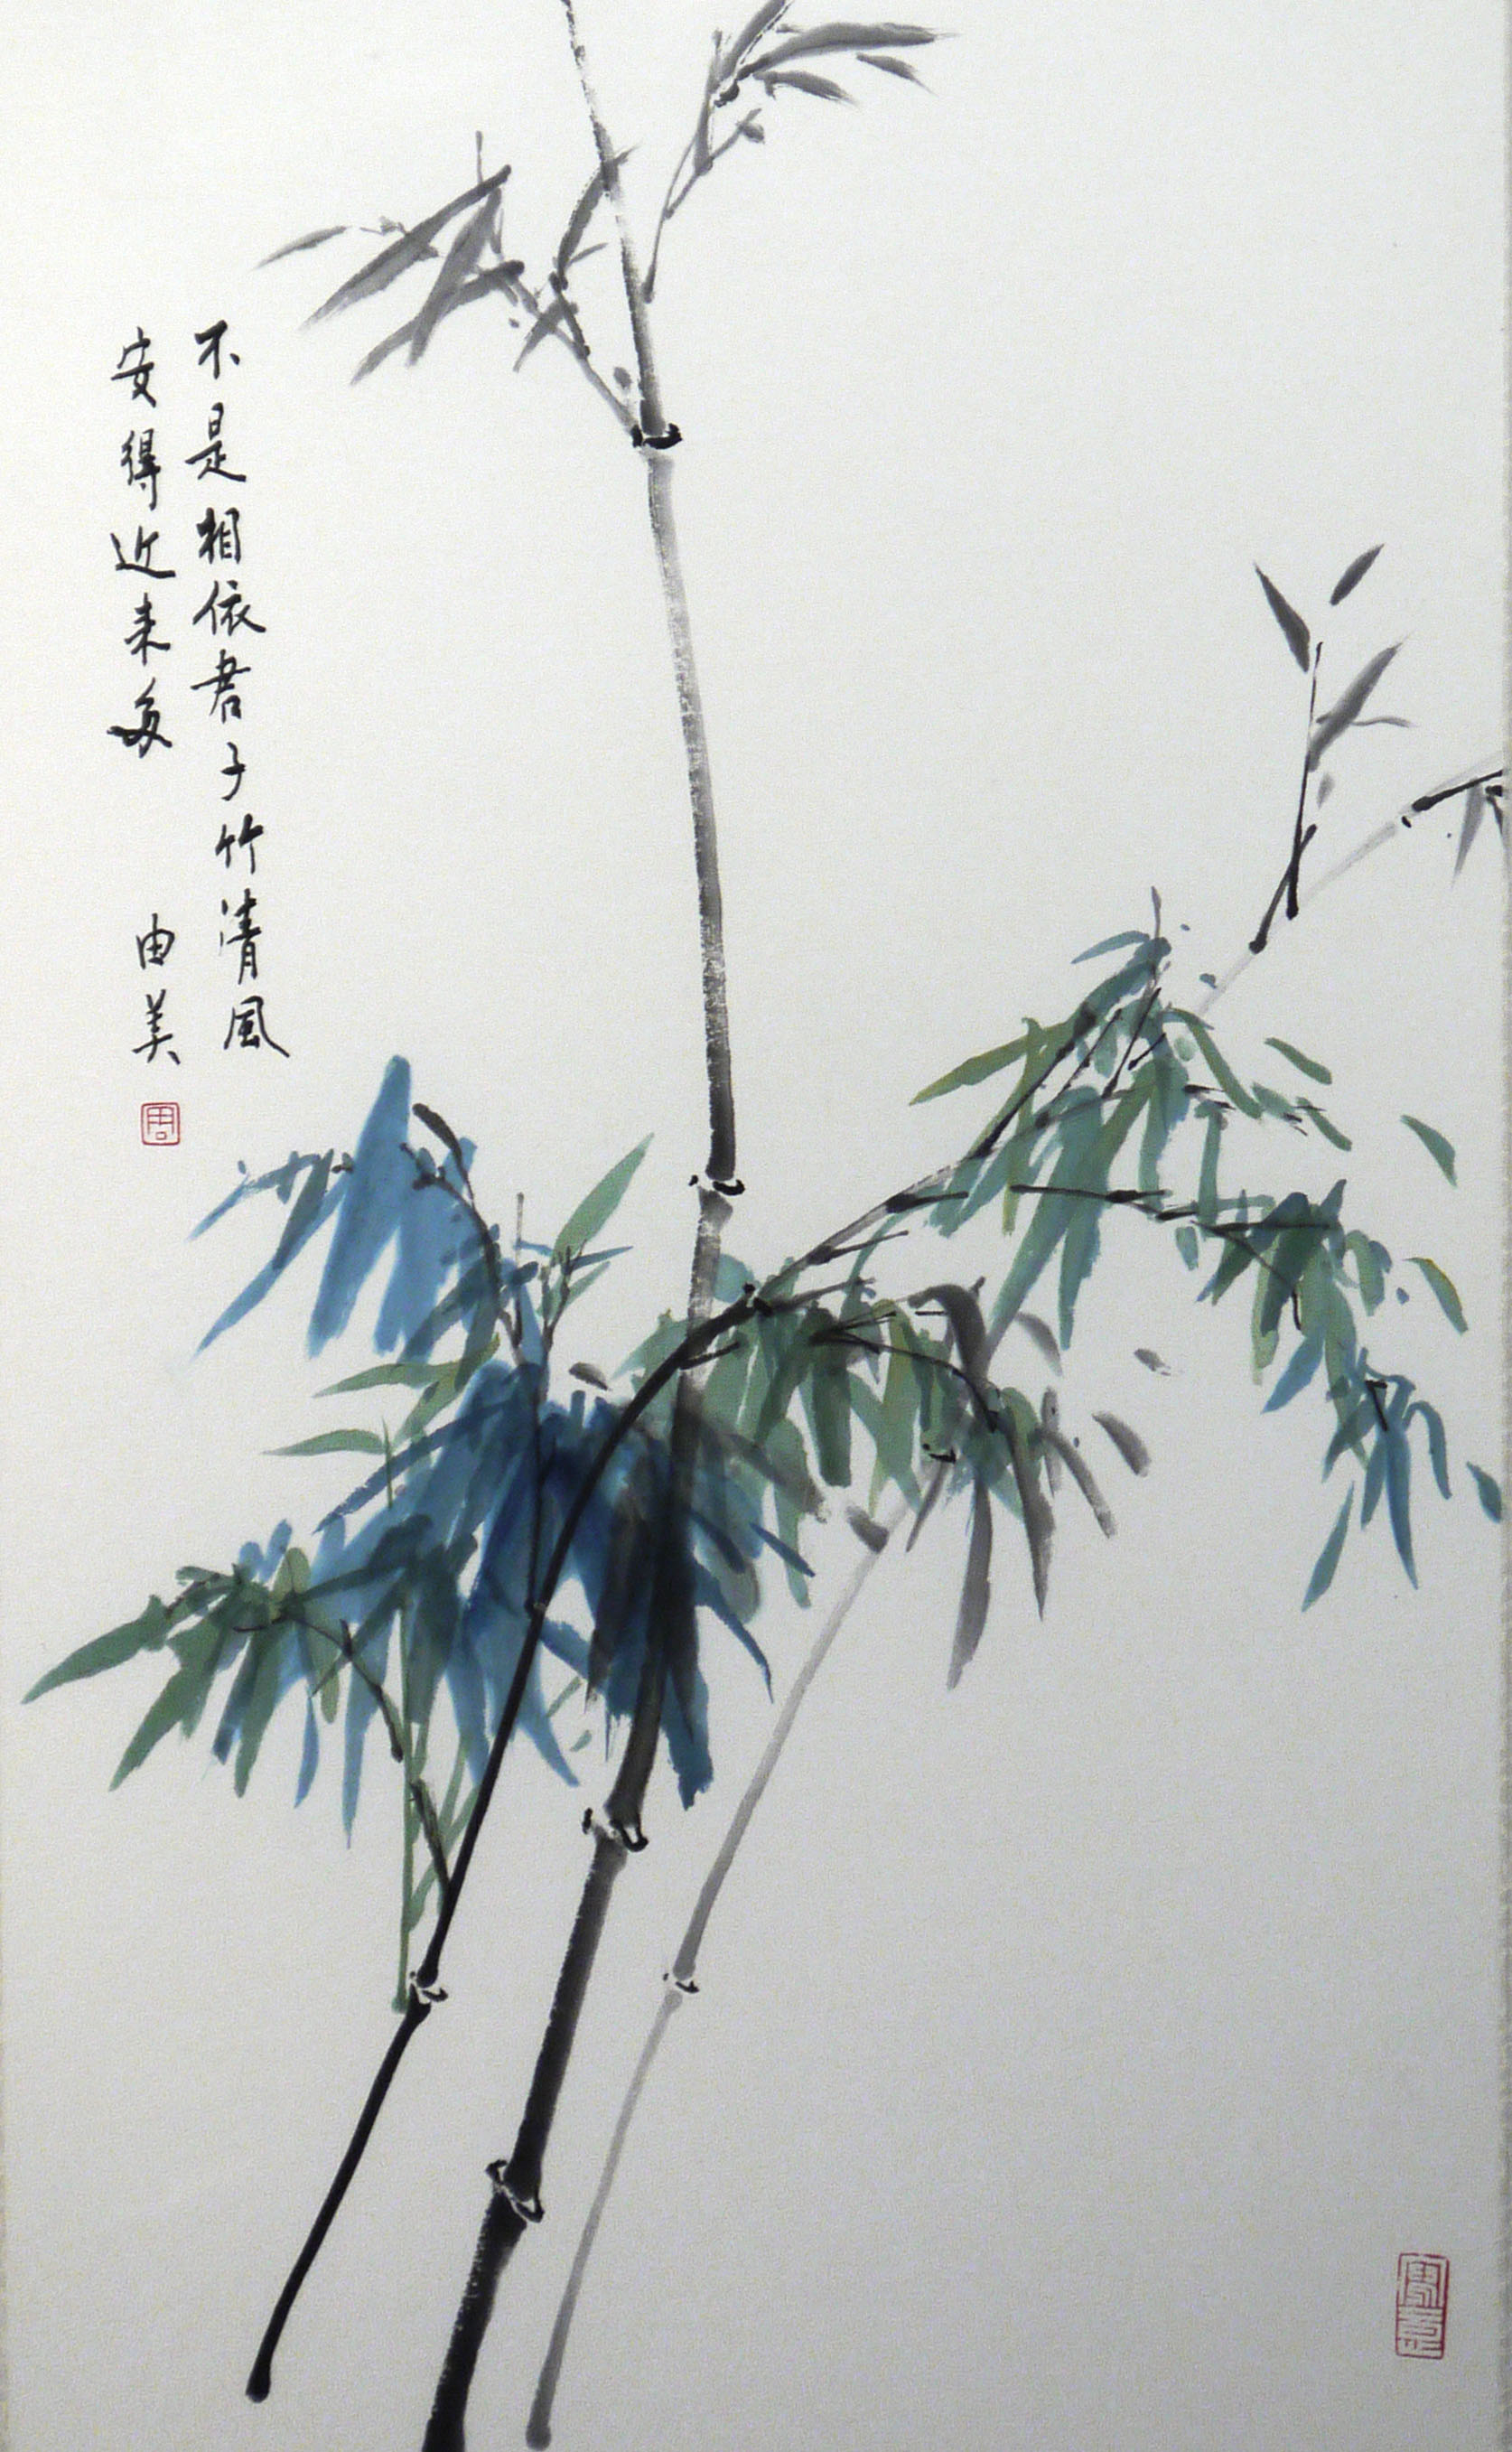 不是相依君子竹清風
安得近来多
由美
周